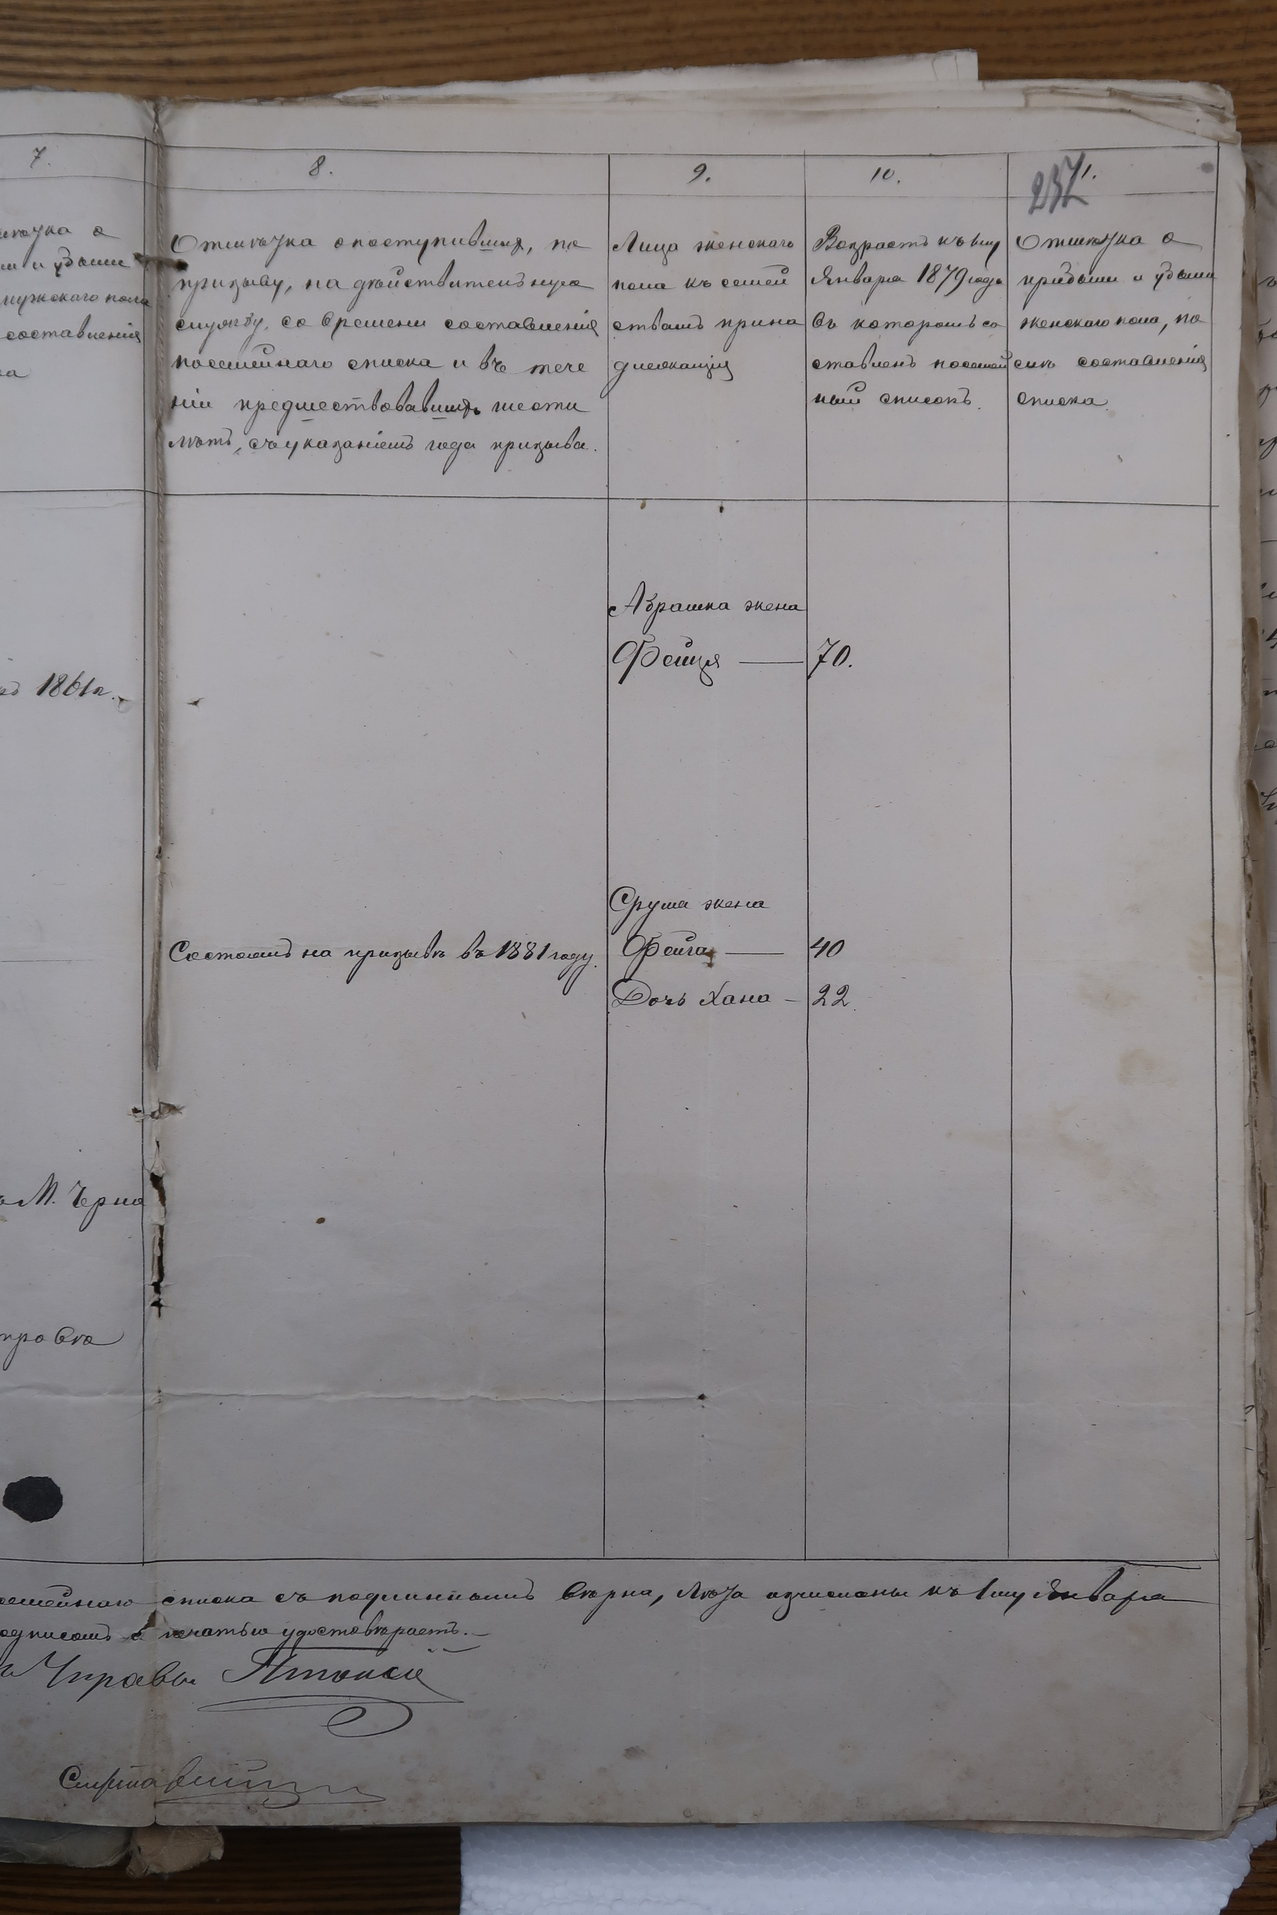 7.
8.
9.
10.
11.
237
Отмѣчка о
и убыли
мужскаго пола
составленія
Отмѣчка о поступившихъ, по
призыву, на дѣйствительную
службу, со времени составленія
посемейнаго списка и въ тече
ніи предшествовавшихъ шести
лѣтъ, съ указаніемъ года призыва.
Лица женскаго
пола къ семей
ствамъ прина
длежащія
Возрастъ къ 1му
Января 1879 года
въ которомъ со
ставленъ посемей
ный списокъ.
Отмѣчка о
прибыли и убыли
женскаго пола, по
слѣ составленія
списка
1861 г.
Абрашка жена
Фейця — 70.
Сруля жена
Состоитъ на призывѣ въ 1881 году. Фейга — 40
Дочь Хана — 22.
М. Черно
посемейнаго списка съ подлиннымъ вѣрна, лѣта изчислены къ 1му Января
подписомъ и печатью удостовѣряетъ.—
Управы